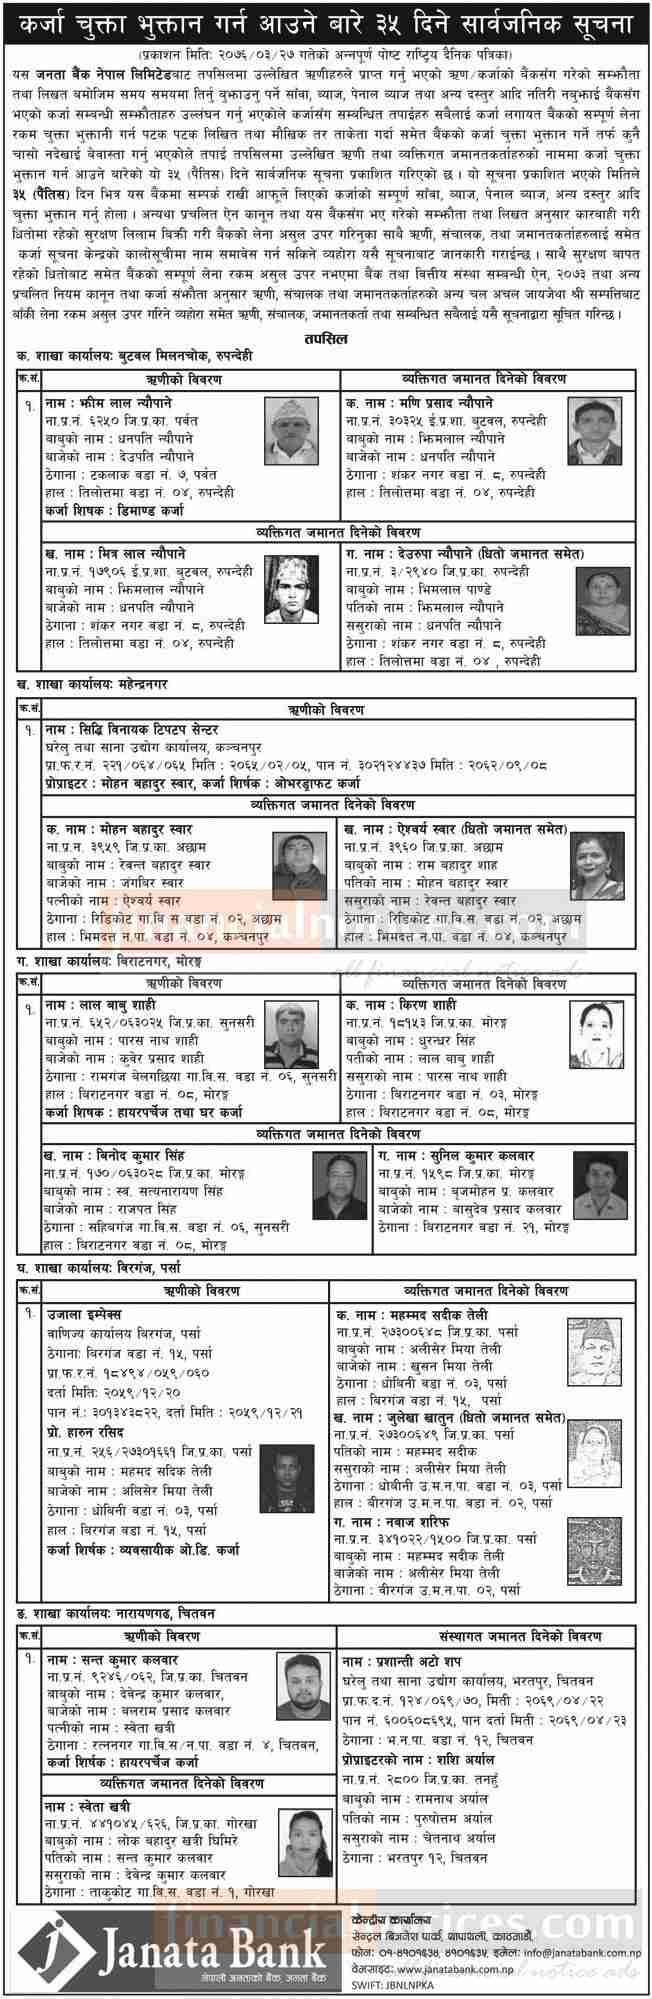 कर्जा चुक्ता भुक्तान गर्न आउने बारे ३५ दिने सार्वजनिक सूचना
(प्रकाशन मितिः २०७६/०३/२७ गतेको अन्नपूर्ण पोष्ट राष्ट्रिय दैनिक पत्रिका)
यस जनता बैंक नेपाल लिमिटेडबाट तपसिलमा उल्लेखित ऋणीहरुले प्राप्त गर्नु भएको ऋण/कर्जाको बैंकसंग गरेको सम्झौता
तथा लिखत बमोजिम समय समयमा तिर्नु वुझाउनु पर्ने सांवा, व्याज, पेनाल व्याज तथा अन्य दस्तुर आदि नतिरी नबुझाई बैंकसंग
भएको कर्जा सम्बन्धी सम्झौताहरु उल्लंघन गर्नु भएकोले कर्जासंग सम्बन्धित तपाईहरु सवैलाई कर्जा लगायत बैंकको सम्पूर्ण लेना
रकम चुक्ता भुक्तानी गर्न पटक पटक लिखित तथा मौखिक तर ताकेता गर्दा समेत बैंकको कर्जा चुक्ता भुक्तान गर्ने तर्फ कुनै
चासो नदेखाई बेवास्ता गर्नु भएकोले तपाई तपसिलमा उल्लेखित ऋणी तथा व्यक्तिगत जमानतकर्ताहरुको नाममा कर्जा चुक्ता
भुक्तान गर्न आउने बारेको यो ३५ (पैंतिस) दिने सार्वजनिक सूचना प्रकाशित गरिएको छ । यो सूचना प्रकाशित भएको मितिले
३५ (पैंतिस) दिन भित्र यस बैंकमा सम्पर्क राखी आफूले लिएको कर्जाको सम्पूर्ण सांबा, व्याज, पेनाल व्याज, अन्य दस्तुर आदि
चुक्ता भुक्तान गर्नु होला । अन्यथा प्रचलित ऐन कानून तथा यस बैंकसंग भए गरेको सम्झौता तथा लिखत अनुसार कारवाही गरी
धितोमा रहेको सुरक्षण लिलाम बिक्री गरी बैंकको लेना असुल उपर गरिनुका साथै ऋणी, संचालक, तथा जमानतकर्ताहरुलाई समेत
कर्जा सूचना केन्द्रको कालोसूचीमा नाम समावेस गर्न सकिने व्यहोरा यसै सूचनाबाट जानकारी गराईन्छ । साथै सुरक्षण बापत
रहेको धितोबाट समेत बैंकको सम्पूर्ण लेना रकम असुल उपर नभएमा बैंक तथा वित्तीय संस्था सम्बन्धी ऐन, २०७३ तथा अन्य
प्रचलित नियम कानून तथा कर्जा संझौता अनुसार ऋणी, संचालक तथा जमानतकर्ताहरुको अन्य चल अचल जायजेथा श्री सम्पत्तिबाट
बाँकी लेना रकम असुल उपर गरिने व्यहोरा समेत ऋणी, संचालक, जमानतकर्ता तथा सम्बन्धित सबैलाई यसै सूचनाद्वारा सूचित गरिन्छ ।
तपसिल
क. शाखा कार्यालयः बुटवल मिलनचोक, रुपन्देही
क्र.सं. ऋणीको विवरण
व्यक्तिगत जमानत दिनेको विवरण
१. नाम : भीम लाल न्यौपाने
ना.प्र.नं. ६२५० जि.प्र.का. पर्वत
बाबुको नाम : धनपति न्यौपाने
बाजेको नाम : देउपति न्यौपाने
ठेगाना : टकलाक वडा नं. ७, पर्वत
हाल : तिलोत्तमा वडा नं. ०४, रुपन्देही
कर्जा शिषक : डिमाण्ड कर्जा
क. नाम : मणि प्रसाद न्यौपाने
ना.प्र.नं. ३०३२५ ई.प्र.शा. बुटवल, रुपन्देही
बाबुको नाम : भिमलाल न्यौपाने
बाजेको नाम : धनपति न्यौपाने
ठेगाना : शंकर नगर वडा नं. ८, रुपन्देही
हाल : तिलोत्तमा वडा नं. ०४, रुपन्देही
व्यक्तिगत जमानत दिनेको विवरण
ख. नाम : मित्र लाल न्यौपाने
ना.प्र.नं. १७९०६ ई.प्र.शा. बुटवल, रुपन्देही
बाबुको नाम : भिमलाल न्यौपाने
बाजेको नाम : धनपति न्यौपाने
ठेगाना : शंकर नगर वडा नं. ८, रुपन्देही
हाल : तिलोत्तमा वडा नं. ०४, रुपन्देही
ग. नाम : देउरुपा न्यौपाने (धितो जमानत समेत)
ना.प्र.नं. ३/२९४० जि.प्र.का. रुपन्देही
बाबुको नाम : भिमलाल पाण्डे
पतिको नाम : भिमलाल न्यौपाने
ससुराको नाम : धनपति न्यौपाने
ठेगाना : शंकर नगर वडा नं. ८, रुपन्देही
हाल : तिलोत्तमा वडा नं. ०४ , रुपन्देही
ख. शाखा कार्यालयः महेन्द्रनगर
क्र.सं. ऋणीको विवरण
१. नाम : सिद्धि विनायक टिपटप सेन्टर
घरेलु तथा साना उद्योग कार्यालय, कञ्चनपुर
प्रा.फ.र.नं. २२१/०६४/०६५ मिति : २०६५/०२/०५, पान नं. ३०२१२४४३७ मिति : २०६२/०९/०८
प्रोप्राइटर : मोहन बहादुर स्वार, कर्जा शिर्षक : ओभरड्राफट कर्जा
व्यक्तिगत जमानत दिनेको विवरण
क. नाम : मोहन बहादुर स्वार
ना.प्र.न. ३९५९ जि.प्र.का. अछाम
बाबुको नाम : रेवन्त बहादुर स्वार
बाजेको नाम : जंगबिर स्वार
पत्नीको नाम : ऐश्वर्य स्वार
ठेगाना : रिडिकोट गा.वि स वडा नं. ०२, अछाम
हाल : भिमदत्त न.पा. वडा नं. ०४, कञ्चनपुर
ख. नाम : ऐश्वर्य स्वार (धितो जमानत समेत)
ना.प्र.नं. ३९६० जि.प्र.का. अछाम
बाबुको नाम : राम बहादुर शाह
पतिको नाम : मोहन बहादुर स्वार
ससुराको नाम : रेवन्त बहादुर स्वार
ठेगाना : रिडिकोट गा.वि.स. वडा नं. ०२, अछाम
हाल : भिमदत्त न.पा. वडा नं. ०४, कञ्चनपुर
financialnotices.com
all financial notice ads
ग. शाखा कार्यालयः बिराटनगर, मोरङ्ग
क्र.सं. ऋणीको विवरण
व्यक्तिगत जमानत दिनेको विवरण
१. नाम : लाल बाबु शाही
ना.प्र.नं. ६५२/०६३०२५ जि.प्र.का. सुनसरी
बाबुको नाम : पारस नाथ शाही
बाजेको नाम : कुवेर प्रसाद शाही
ठेगाना : रामगंज बेलगछिया गा.वि.स. वडा नं. ०६, सुनसरी
हाल : बिराटनगर वडा नं. ०८, मोरङ्ग
कर्जा शिषक : हायरपर्चेज तथा घर कर्जा
क. नाम : किरण शाही
ना.प्र.नं. १८१५३ जि.प्र.का. मोरङ्ग
बाबुको नाम : धुरन्धर सिंह
पतीको नाम : लाल बाबु शाही
ससुराको नाम : पारस नाथ शाही
ठेगाना : बिराटनगर वडा नं. ०३, मोरङ्ग
हाल : बिराटनगर वडा नं. ०८, मोरङ्ग
व्यक्तिगत जमानत दिनेको विवरण
ख. नाम : बिनोद कुमार सिंह
ना.प्र.नं. १७०/०६३०२८ जि.प्र.का. मोरङ्ग
बाबुको नाम : स्व. सत्यनारायण सिंह
बाजेको नाम : राजपत सिंह
ठेगाना : सहिबगंज गा.वि.स. वडा नं. ०६, सुनसरी
हाल : बिराटनगर वडा नं. ०८, मोरङ्ग
ग. नाम : सुनिल कुमार कलवार
ना.प्र.नं. १५९८ जि.प्र.का. मोरङ्ग
बाबुको नाम : बृजमोहन प्र. कलवार
बाजेको नाम : बासुदेव प्रसाद कलवार
ठेगाना : बिराटनगर वडा नं. २१, मोरङ्ग
घ. शाखा कार्यालयः बिरगंज, पर्सा
क्र.सं. ऋणीको विवरण
व्यक्तिगत जमानत दिनेको विवरण
१. उजाला इम्पेक्स
वाणिज्य कार्यालय बिरगंज, पर्सा
ठेगानाः बिरगंज वडा नं. १५, पर्सा
प्रा.फ.र.नं. १८४९४/०५९/०६०
दर्ता मितिः २०५९/१२/२०
पान नं.: ३०१३४३८२२, दर्ता मिति : २०५९/१२/२१
प्रो. हारुन रसिद
ना.प्र.नं. २५६/२७३०१६६१ जि.प्र.का. पर्सा
बाबुको नाम : महमद सदिक तेली
बाजेको नाम : अलिसेर मिया तेली
ठेगाना : धोबिनी वडा नं. ०३, पर्सा
हाल : बिरगंज वडा नं. १५, पर्सा
कर्जा शिर्षक : व्यवसायीक ओ.डि. कर्जा
क. नाम : महम्मद सदीक तेली
ना.प्र.नं. २७३००६४८ जि.प्र.का. पर्सा
बाबुको नाम : अलीसेर मिया तेली
बाजेको नाम : खुसन मिया तेली
ठेगाना : धोबिनी वडा नं. ०३, पर्सा
हाल : बिरगंज वडा नं. १५, पर्सा
ख. नाम : जुलेखा खातुन (धितो जमानत समेत)
ना.प्र.नं. २७३००६४९ जि.प्र.का. पर्सा
पतिको नाम : महम्मद सदीक
ससुराको नाम : अलीसेर मिया तेली
ठेगाना : धोबीनी उ.म.न.पा. वडा नं. ०३, पर्सा
हाल : बीरगंज उ.म.न.पा. वडा नं. ०२, पर्सा
ग. नाम : नवाज शरिफ
ना.प्र.नं. ३४१०२२/१५०० जि.प्र.का. पर्सा
बाबुको नाम : महम्मद सदीक तेली
बाजेको नाम : अलीसेर मिया तेली
ठेगाना : वीरगंज उ.म.न.पा. ०२, पर्सा
ङ. शाखा कार्यालयः नारायणगढ, चितवन
क्र.सं. ऋणीको विवरण
संस्थागत जमानत दिनेको विवरण
१. नाम : सन्त कुमार कलवार
ना.प्र.नं. ९२४६/०६२, जि.प्र.का. चितवन
बाबुको नाम : देवेन्द्र कुमार कलवार,
बाजेको नाम : बलराम प्रसाद कलवार
पत्नीको नाम : स्वेता खत्री
ठेगाना : रत्ननगर गा.वि.स/न.पा. वडा नं. ४, चितवन,
कर्जा शिर्षक : हायरपर्चेज कर्जा
व्यक्तिगत जमानत दिनेको विवरण
नाम : स्वेता खत्री
ना.प्र.नं. ४४१०४५/६२६, जि.प्र.का. गोरखा
बाबुको नाम : लोक बहादुर खत्री घिमिरे
पतिको नाम : सन्त कुमार कलवार
ससुराको नाम : देवेन्द्र कुमार कलवार
ठेगाना : ताकुकोट गा.वि.स. वडा नं. १, गोरखा
नाम : प्रशान्ती अटो शप
घरेलु तथा साना उद्योग कार्यालय, भरतपुर, चितवन
प्रा.फ.द.नं. १२४/०६९/७०, मिती : २०६९/०४/२२
पान नं. ६००६०८६९५, पान दर्ता मिती : २०६९/०४/२३
ठेगाना : भ.न.पा. वडा नं. १२, चितवन
प्रोप्राइटरको नाम : शशि अर्याल
ना.प्र.नं. २८०० जि.प्र.का. तनहुँ
बाबुको नाम : रामनाथ अर्याल
पतिको नाम : पुरुषोत्तम अर्याल
ससुराको नाम : चेतनाथ अर्याल
ठेगाना : भरतपुर १२, चितवन
financialnotices.com
all financial notice ads
Janata Bank
नेपाली जनताको बैंक, जनता बैंक
केन्द्रीय कार्यालय
सेन्ट्रल बिजनेश पार्क, थापाथली, काठमाडौं,
फोनः ०१-४१०१६३४, ४१०१६३५, इमेलः info@janatabank.com.np
वेवसाइटः www.janatabank.com.np
SWIFT: JBNLNPKA